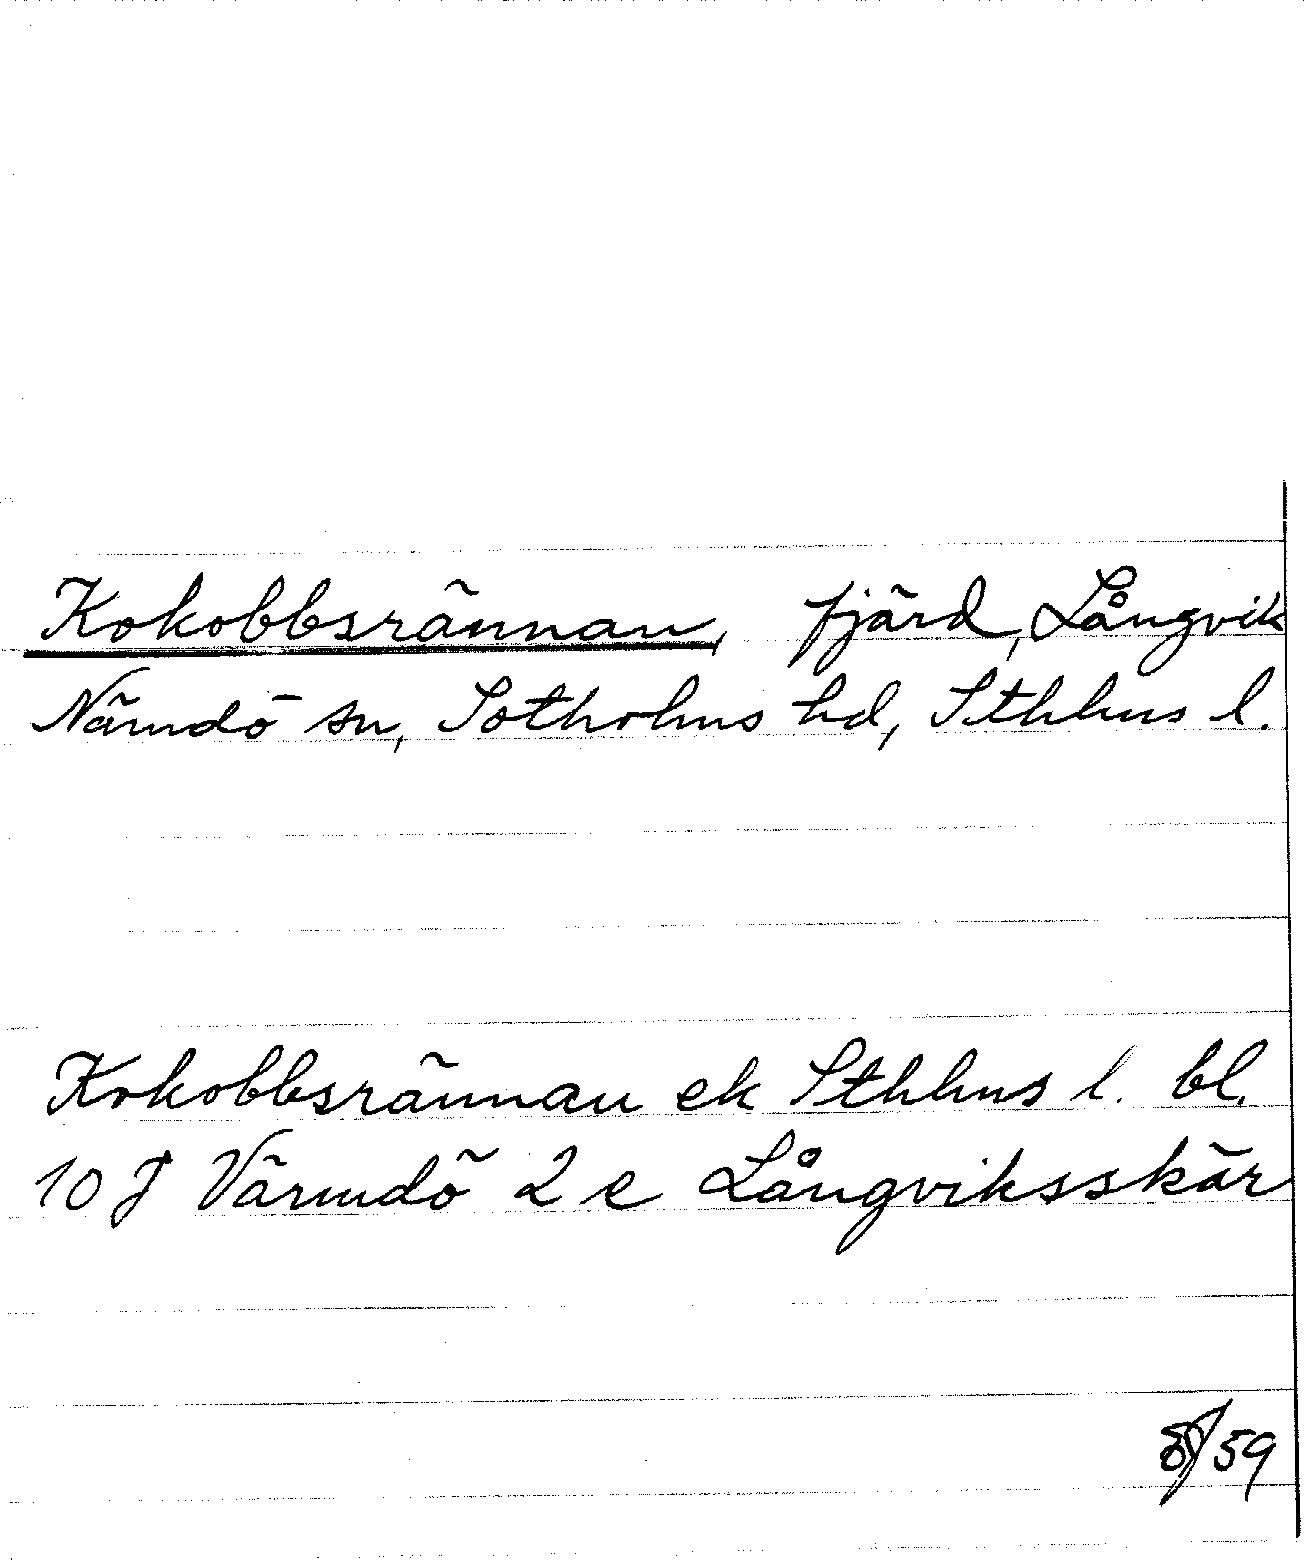 Kokobbsrännan, fjärd, Långvik
Nämdö sn, Sotholms hd, Sthlms l.
Kokobbsrännan ek Sthlms l. bl.
10 J Värmdö 2 e Långviksskär
/59